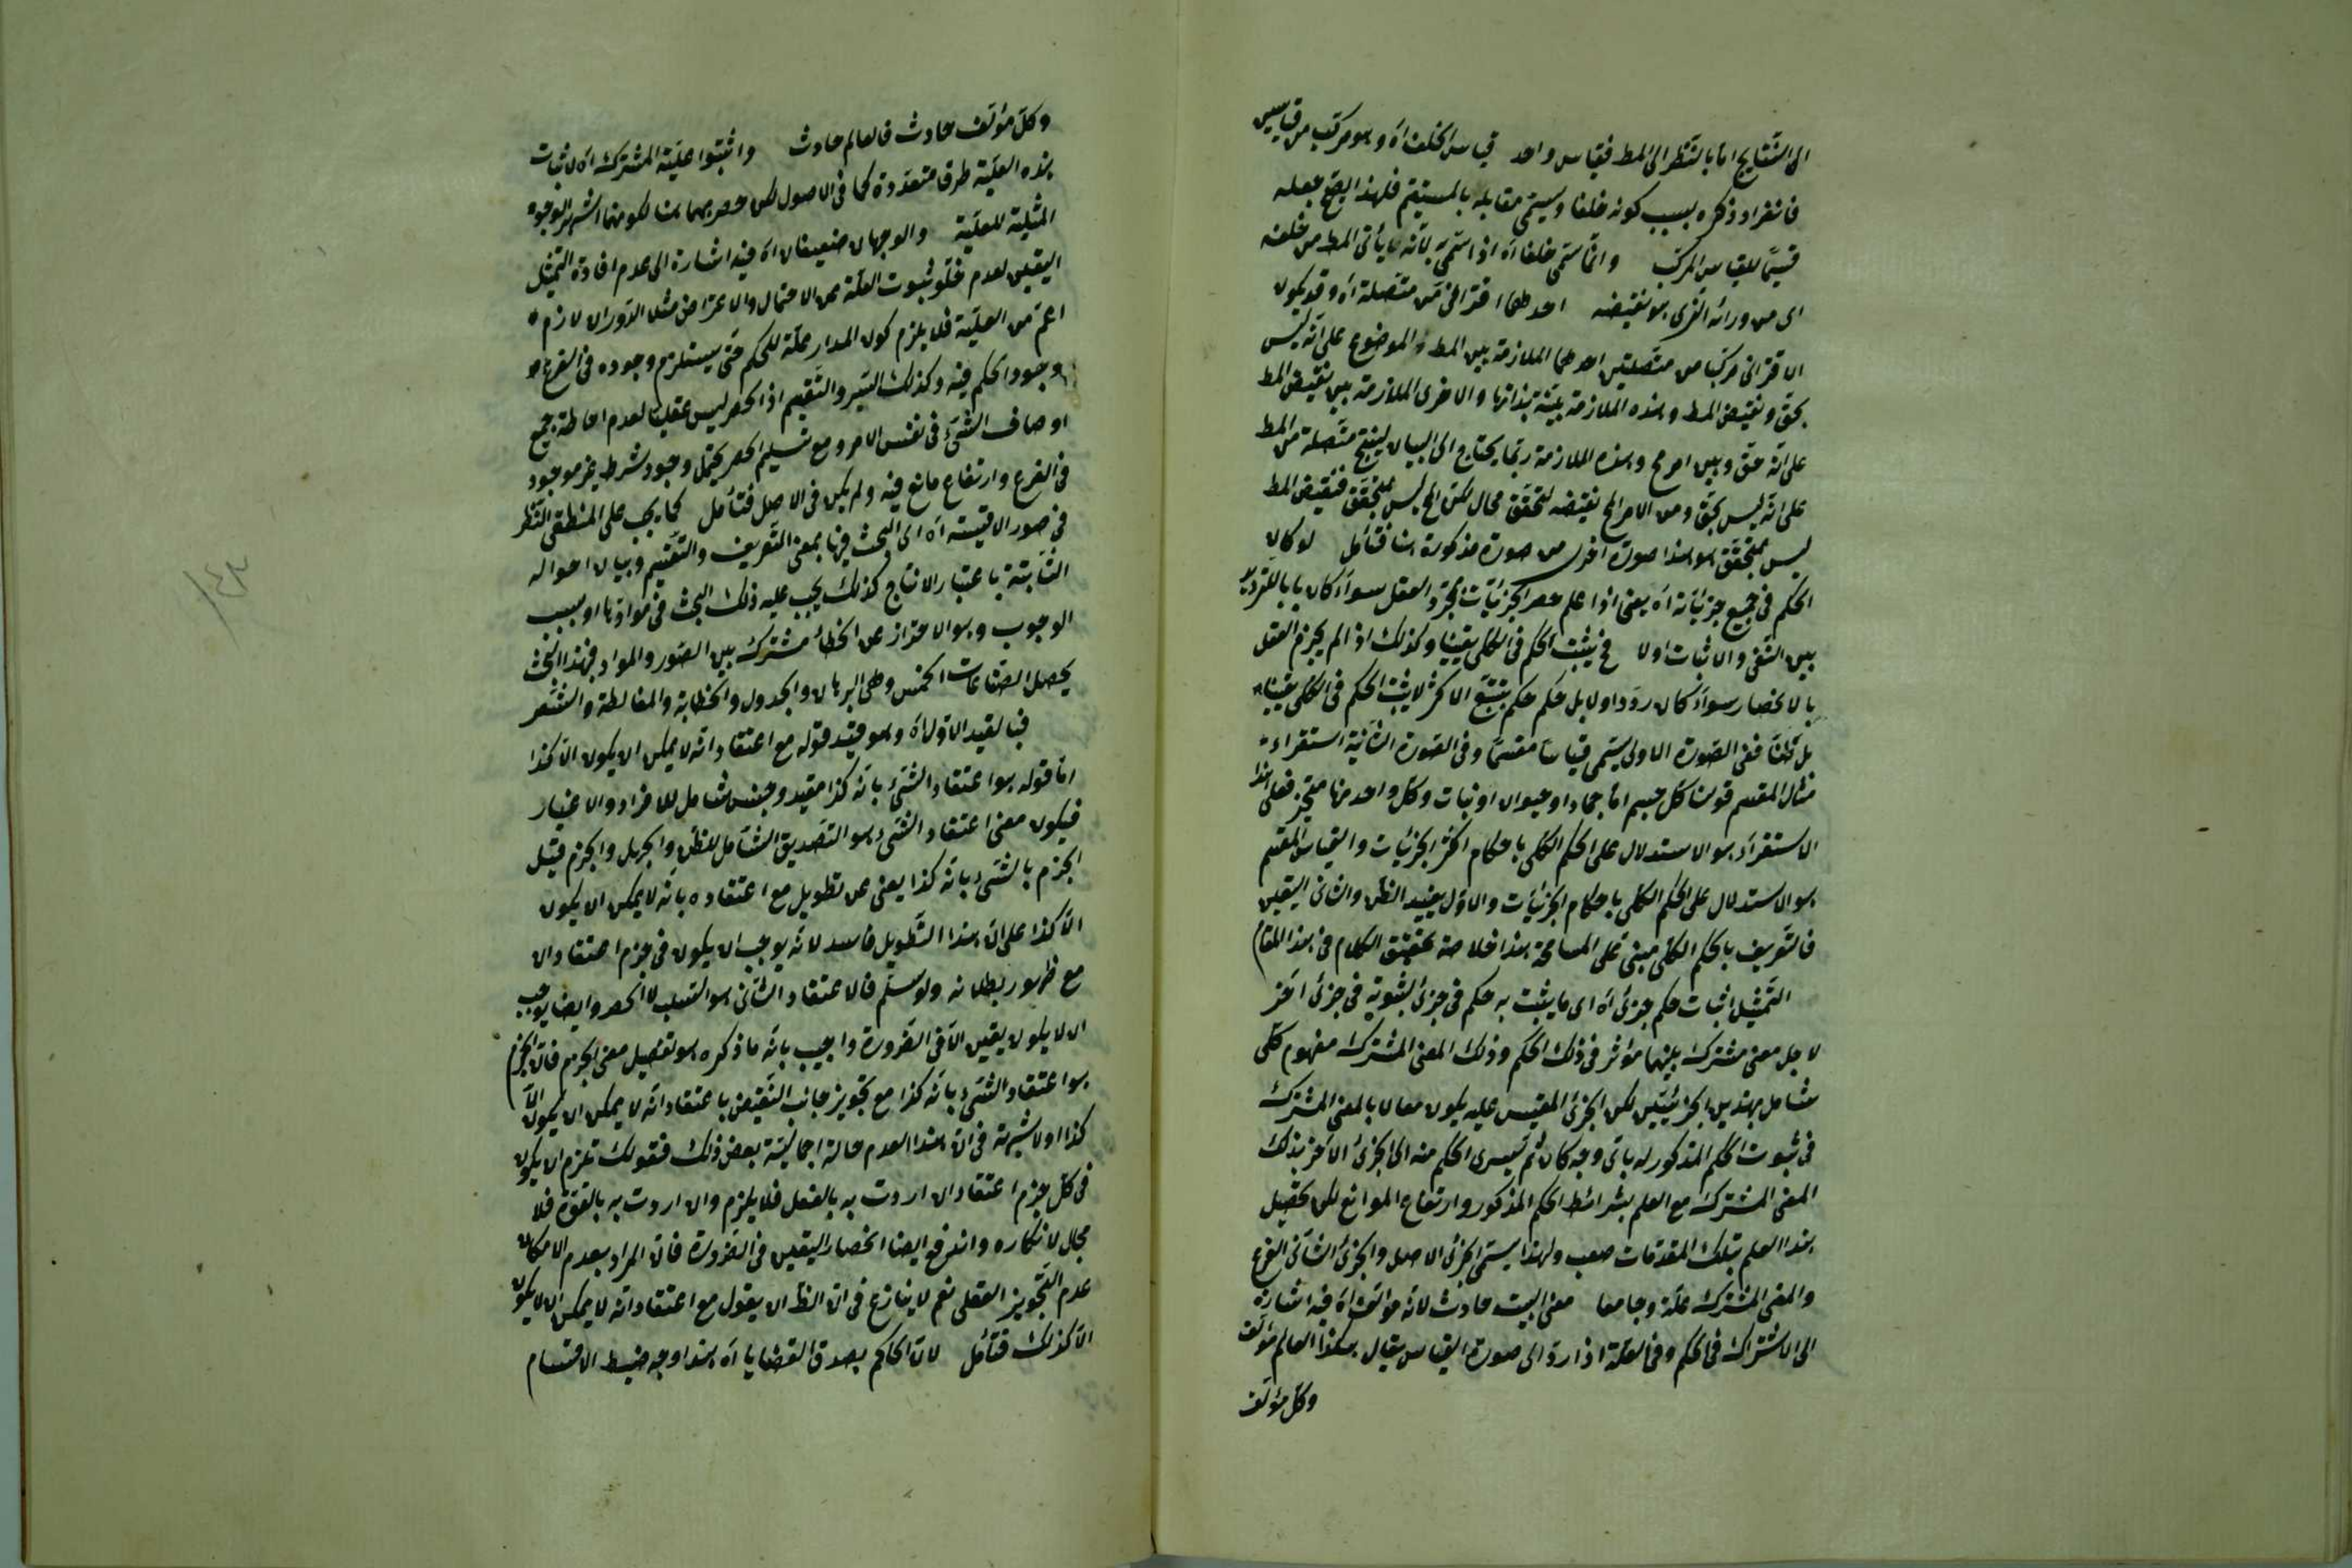 الى النتايج اما بالنظر الى المط فقياس واحد قياس الخلف اه وهو مركب من قياسين
فانفراد ذكره بسبب كونه خلفا ويسمى مقابله بالمستقيم فلهذا يصح جعله
قسيما للقياس المركب وانما سمى خلفا اه اذ استمى به لانه يأتى المط من خلفه
اى من ورائه الذى هو نقيضه احدهما اقترانى من متصلة اه وقد يكون
الاقترانى مركبا من متصلتين احدهما الملازمة بين المط والموضوع على انه ليس
بحق ونقيض المط وهذه الملازمة بينة بذاتها والاخرى الملازمة بين نقيض المط
على انه حق وبين امر مح وهذه الملازمة ربما يحتاج الى البيان لينتج متصلة من المط
على انه ليس بحق ومن الامر المح نقيضه لتحقق محال لكن المح ليس بمتحقق فنقيض المط
ليس بمتحقق هو هذا صورة اخرى من صورة مذكورة هنا فتأمل لو كان
الحكم فى جميع جزئياته اه يعنى اذا علم حصر الجزئيات بمجرد العقل سواء كان بالترديد
بين النفى والاثبات اولا فح يثبت الحكم فى الكلى يقينا وكذلك اذا لم يجزم العقل
بالانحصار سواء كان ردد اولا بل حكم حكم بتتبع الاكثر لا يثبت الحكم فى الكلى يقينا
بل ظنا ففى الصورة الاولى يسمى قياسا مقسما وفى الصورة الثانية استقراء
مثال المقسم قولنا كل جسم اما جماد او حيوان او نبات وكل واحد منها متحيز فعلى هذا
الاستقراء هو الاستدلال على الحكم الكلى باحكام اكثر الجزئيات والقياس المقسم
هو الاستدلال على الحكم الكلى باحكام الجزئيات والاول يفيد الظن والثانى اليقين
فالتعريف بالحكم الكلى مبنى على المسامحة هذا خلاصة تحقيق الكلام فى هذا المقام
التمثيل اثبات حكم جزئى اه اى ما يثبت به حكم فى جزئى لثبوته فى جزئى آخر
لاجل معنى مشترك بينهما مؤثر فى ذلك الحكم وذلك المعنى المشترك مفهوم كلى
شامل بهذين الجزئيين لكن الجزئى المقيس عليه يكون معللا بالمعنى المشترك
فى ثبوت الحكم المذكور له باى وجه كان ثم يسرى الحكم منه الى الجزئى الآخر بذلك
المعنى المشترك مع العلم بشرائط الحكم المذكور وارتفاع الموانع لكن تحصيل
هذا العلم بتلك المقدمات صعب ولهذا يسمى الجزئى الاصل والجزئى الثانى الفرع
والمعنى المشترك علة وجامعا معنى البيت حادث لانه مؤلف اه فيه اشارة
الى الاشتراك فى الحكم وفى العلة اذا رد الى صورة القياس يقال هكذا العالم مؤلف
وكل مؤلف
وكل مؤلف حادث فالعالم حادث واثبتوا علية المشترك اه لاثبات
هذه العلية طرق متعددة كما فى الاصول لكن حصر بهما هنا لكونهما اشهر الوجوه
المثبتة للعلية والوجهان ضعيفان اه فيه اشارة الى عدم افادة التمثيل
اليقين لعدم خلو ثبوت العلة عن الاحتمال والاعتراض مثل الدوران لازم
اعم من العلية فلا يلزم كون المدار علة للحكم حتى يستلزم وجوده فى الفرع
وجود الحكم فيه وكذلك السبر والتقسيم اذ الحصر ليس عقليا لعدم احاطة جميع
اوصاف الشئ فى نفس الامر ومع تسليم الحصر يحتمل وجود شرط غير موجود
فى الفرع وارتفاع مانع فيه ولم يكن فى الاصل فتأمل كما يجب على المنطقى النظر
فى صور الاقيسة اه اى البحث فيها بمعنى التعريف والتقسيم وبيان احواله
الثابتة باعتبار الانتاج كذلك يجب عليه ذلك البحث فى موادها اذ سبب
الوجوب وهو الاحتراز عن الخطأ مشترك بين الصور والمواد فبهذا البحث
يحصل الصناعات الخمس وهى البرهان والجدل والخطابة والمغالطة والشعر
فبالقيد الاول اه وهو قيد قوله مع اعتقاد انه لا يمكن ان يكون الا كذا
اما قوله هو اعتقاد الشئ بانه كذا مقيد وجنس شامل للافراد والاغيار
فيكون معنى اعتقاد الشئ هو التصديق الشامل للظن والجهل والجزم قيل
الجزم بالشئ بانه كذا يغنى عن تطويل مع اعتقاده بانه لا يمكن ان يكون
الا كذا على ان هذا التطويل فاسد لانه يوجب ان يكون فى جزم اعتقادان
مع ظهور بطلانه ولو سلم فالاعتقاد الثانى هو السلب لا الحصر وايضا يوجب
ان لا يكون يقين الا فى الضرورة واجيب بانه ما ذكره هو تفصيل معنى الجزم فان الجزم
هو اعتقاد الشئ بانه كذا مع تجويز جانب النقيض باعتقاد انه لا يمكن ان يكون الا
كذا اولا شبهة فى ان هذا العدم حالة اجمالية بعض ذلك فقولك تلزم ان يكون
فى كل جزم اعتقادان اردت به بالفعل فلا يلزم وان اردت به بالقوة فلا
مجال لانكاره واندفع ايضا انحصار اليقين فى الضرورة فان المراد بعدم الامكان
عدم التجويز العقلى نعم لا ينازع فى ان الظ ان يقول مع اعتقاد انه لا يمكن ان لا يكون
الا كذلك فتأمل لان الحاكم بصدق القضايا اه هذا وجه ضبط الاقسام